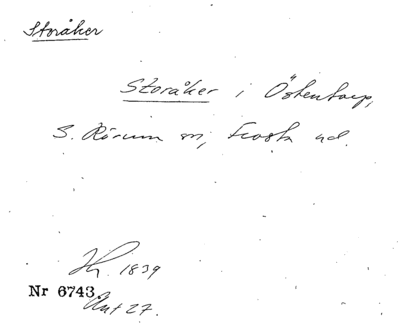 Storåker
Storåker i Östentorp,
S. Rörum sn, Frosta hd.
1839
Nr 6743.
27.